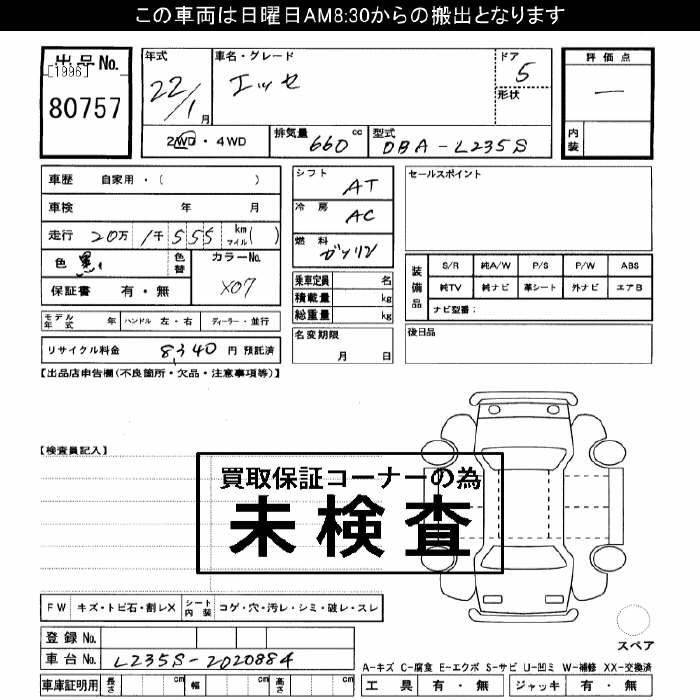 この車両は日曜日AM8:30からの搬出となります
出品No.
[1996]
80757
年式
22/1月
車名・グレード
エッセ
ドア
5
形状
評価点
―
内装
2WD・4WD
排気量 660 cc
型式 DBA-L235S
車歴 自家用・( )
車検 年 月
走行 20万1千555 km マイル( )
色 黒
色替
カラーNo.
X07
保証書 有・無
シフト AT
冷房 AC
燃料 ガソリン
乗車定員 名
積載量 kg
総重量 kg
セールスポイント
装備品
S/R 純A/W P/S P/W ABS
純TV 純ナビ 革シート 外ナビ エアB
ナビ型番:
モデル年式 年 ハンドル 左・右 ディーラー・並行
名変期限
月 日
後日品
リサイクル料金 8,340 円 預託済
【出品店申告欄(不良箇所・欠品・注意事項等)】
【検査員記入】
買取保証コーナーの為
未検査
FW キズ・トビ石・割レX シート内装 コゲ・穴・汚レ・シミ・破レ・スレ
スペア
登録No.
車台No. L235S-2020884
A-キズ C-腐食 E-エクボ S-サビ U-凹ミ W-補修 XX-交換済
車庫証明用 長さ cm 幅 cm 高さ cm
工具 有・無 ジャッキ 有・無